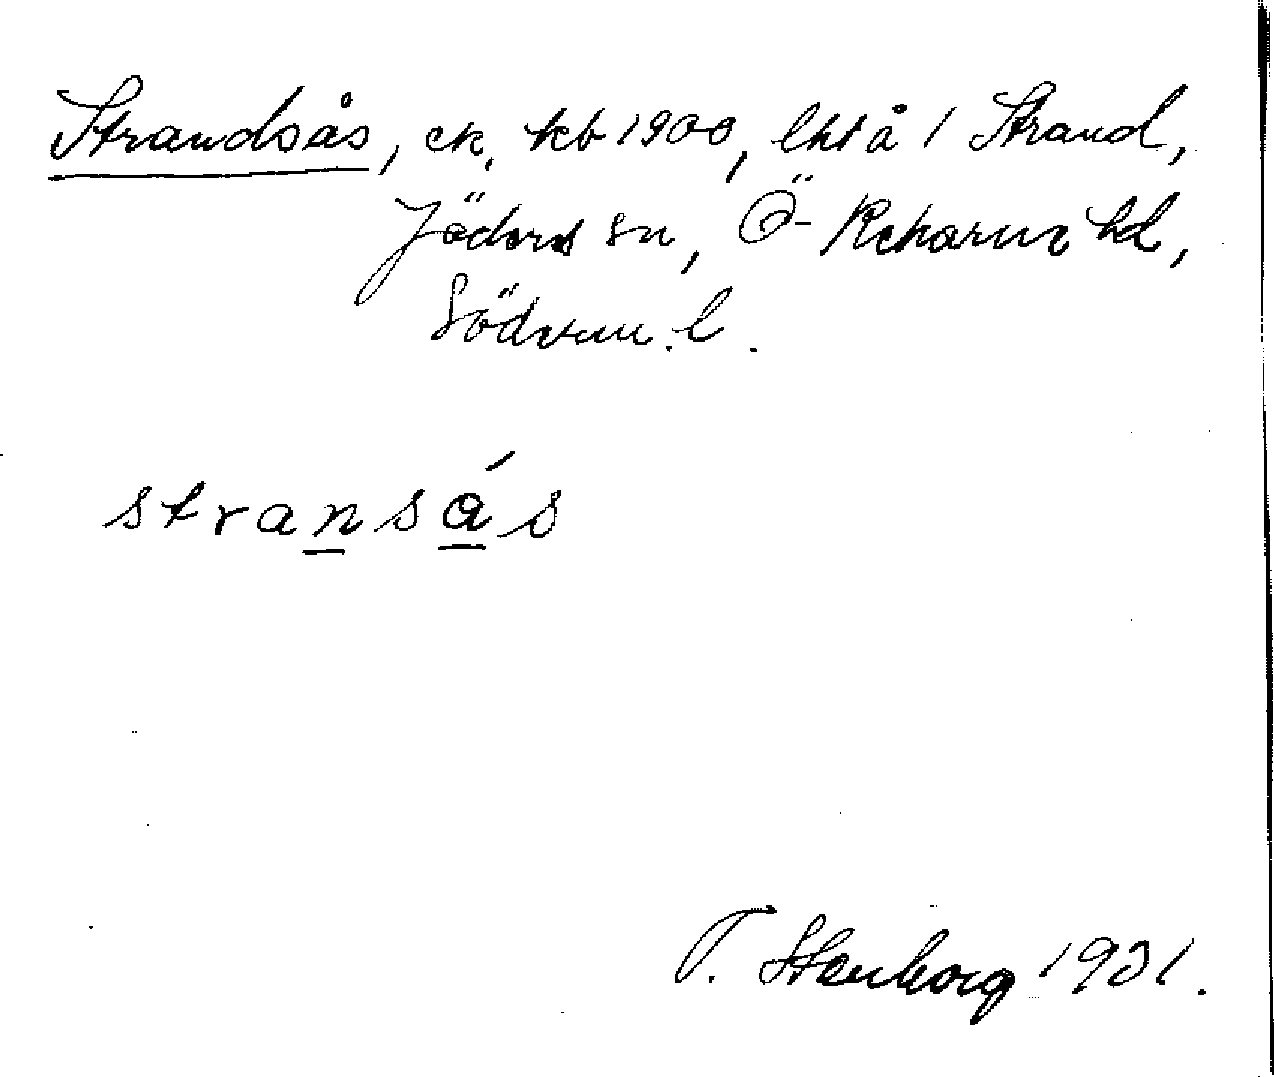 Strandsås, ek. kb 1900, lht å 1 Strand,
Jäders sn, Ö- Rekarne hd,
Söderm. l.
stransås
T. Stenborg 1931.